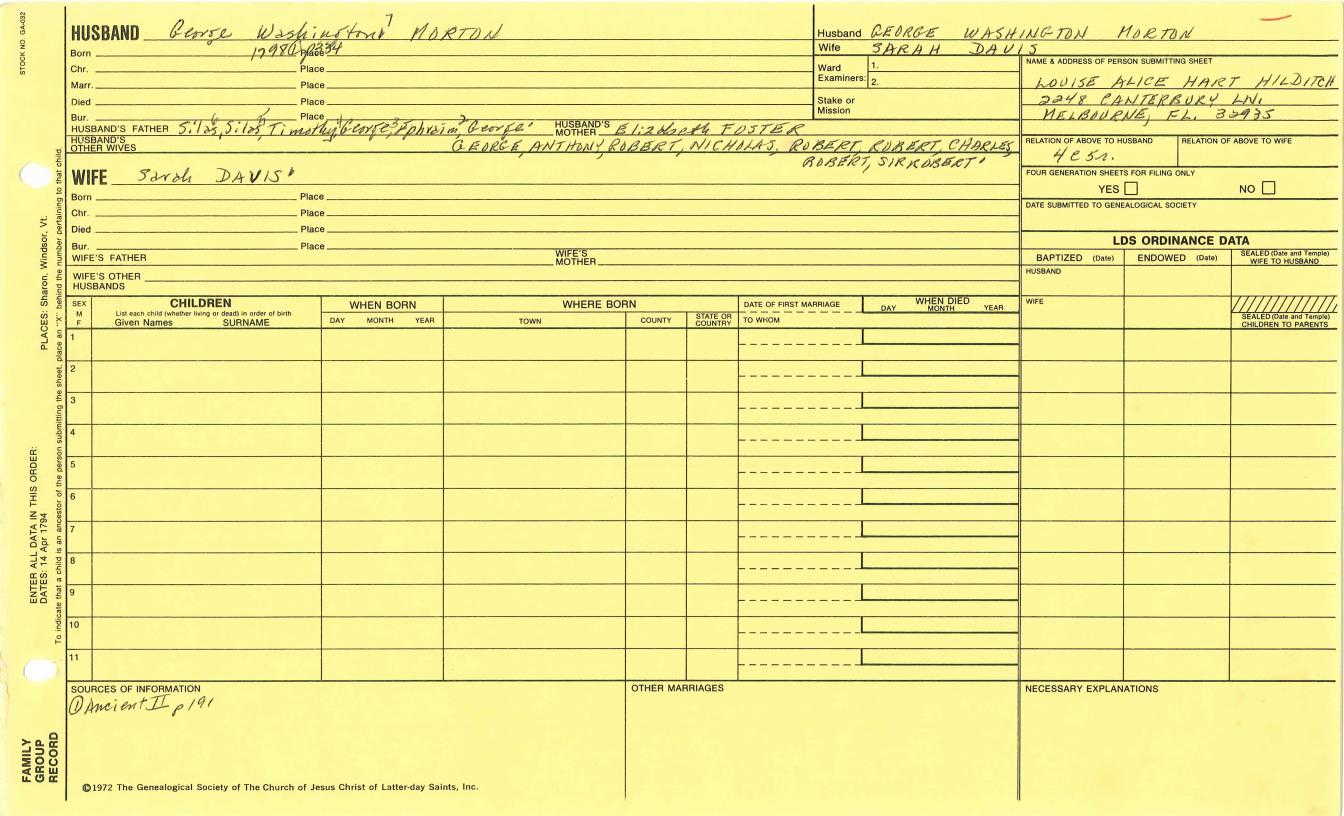 STOCK NO. GA-032
HUSBAND George Washington⁷ MORTON
Born 1798① p334 Place
Chr. Place
Marr. Place
Died Place
Bur. Place
HUSBAND'S FATHER Silas⁶, Silas⁵, Timothy⁴, George³, Ephraim², George¹ HUSBAND'S MOTHER Elizabeth FOSTER
GEORGE, ANTHONY, ROBERT, NICHOLAS, ROBERT, ROBERT, CHARLES,
HUSBAND'S OTHER WIVES
ROBERT, SIR ROBERT¹
WIFE Sarah DAVIS¹
Born Place
Chr. Place
Died Place
Bur. Place
WIFE'S FATHER WIFE'S MOTHER
WIFE'S OTHER HUSBANDS
Husband GEORGE WASHINGTON MORTON
Wife SARAH DAVIS
Ward Examiners: 1.
2.
Stake or Mission
NAME & ADDRESS OF PERSON SUBMITTING SHEET
LOUISE ALICE HART HILDITCH
2248 CANTERBURY LN.
MELBOURNE, FL. 32935
RELATION OF ABOVE TO HUSBAND RELATION OF ABOVE TO WIFE
4c5r.
FOUR GENERATION SHEETS FOR FILING ONLY
YES NO
DATE SUBMITTED TO GENEALOGICAL SOCIETY
LDS ORDINANCE DATA
BAPTIZED (Date) ENDOWED (Date) SEALED (Date and Temple) WIFE TO HUSBAND
HUSBAND
WIFE
SEALED (Date and Temple) CHILDREN TO PARENTS
SEX M F
CHILDREN
List each child (whether living or dead) in order of birth
Given Names SURNAME
WHEN BORN
DAY MONTH YEAR
WHERE BORN
TOWN COUNTY STATE OR COUNTRY
DATE OF FIRST MARRIAGE
TO WHOM
WHEN DIED
DAY MONTH YEAR
1
2
3
4
5
6
7
8
9
10
11
SOURCES OF INFORMATION
① Ancient II p 191
OTHER MARRIAGES
NECESSARY EXPLANATIONS
©1972 The Genealogical Society of The Church of Jesus Christ of Latter-day Saints, Inc.
FAMILY GROUP RECORD
ENTER ALL DATA IN THIS ORDER:
DATES: 14 Apr 1794
PLACES: Sharon, Windsor, Vt.
To indicate that a child is an ancestor of the person submitting the sheet, place an "X" behind the number pertaining to that child.